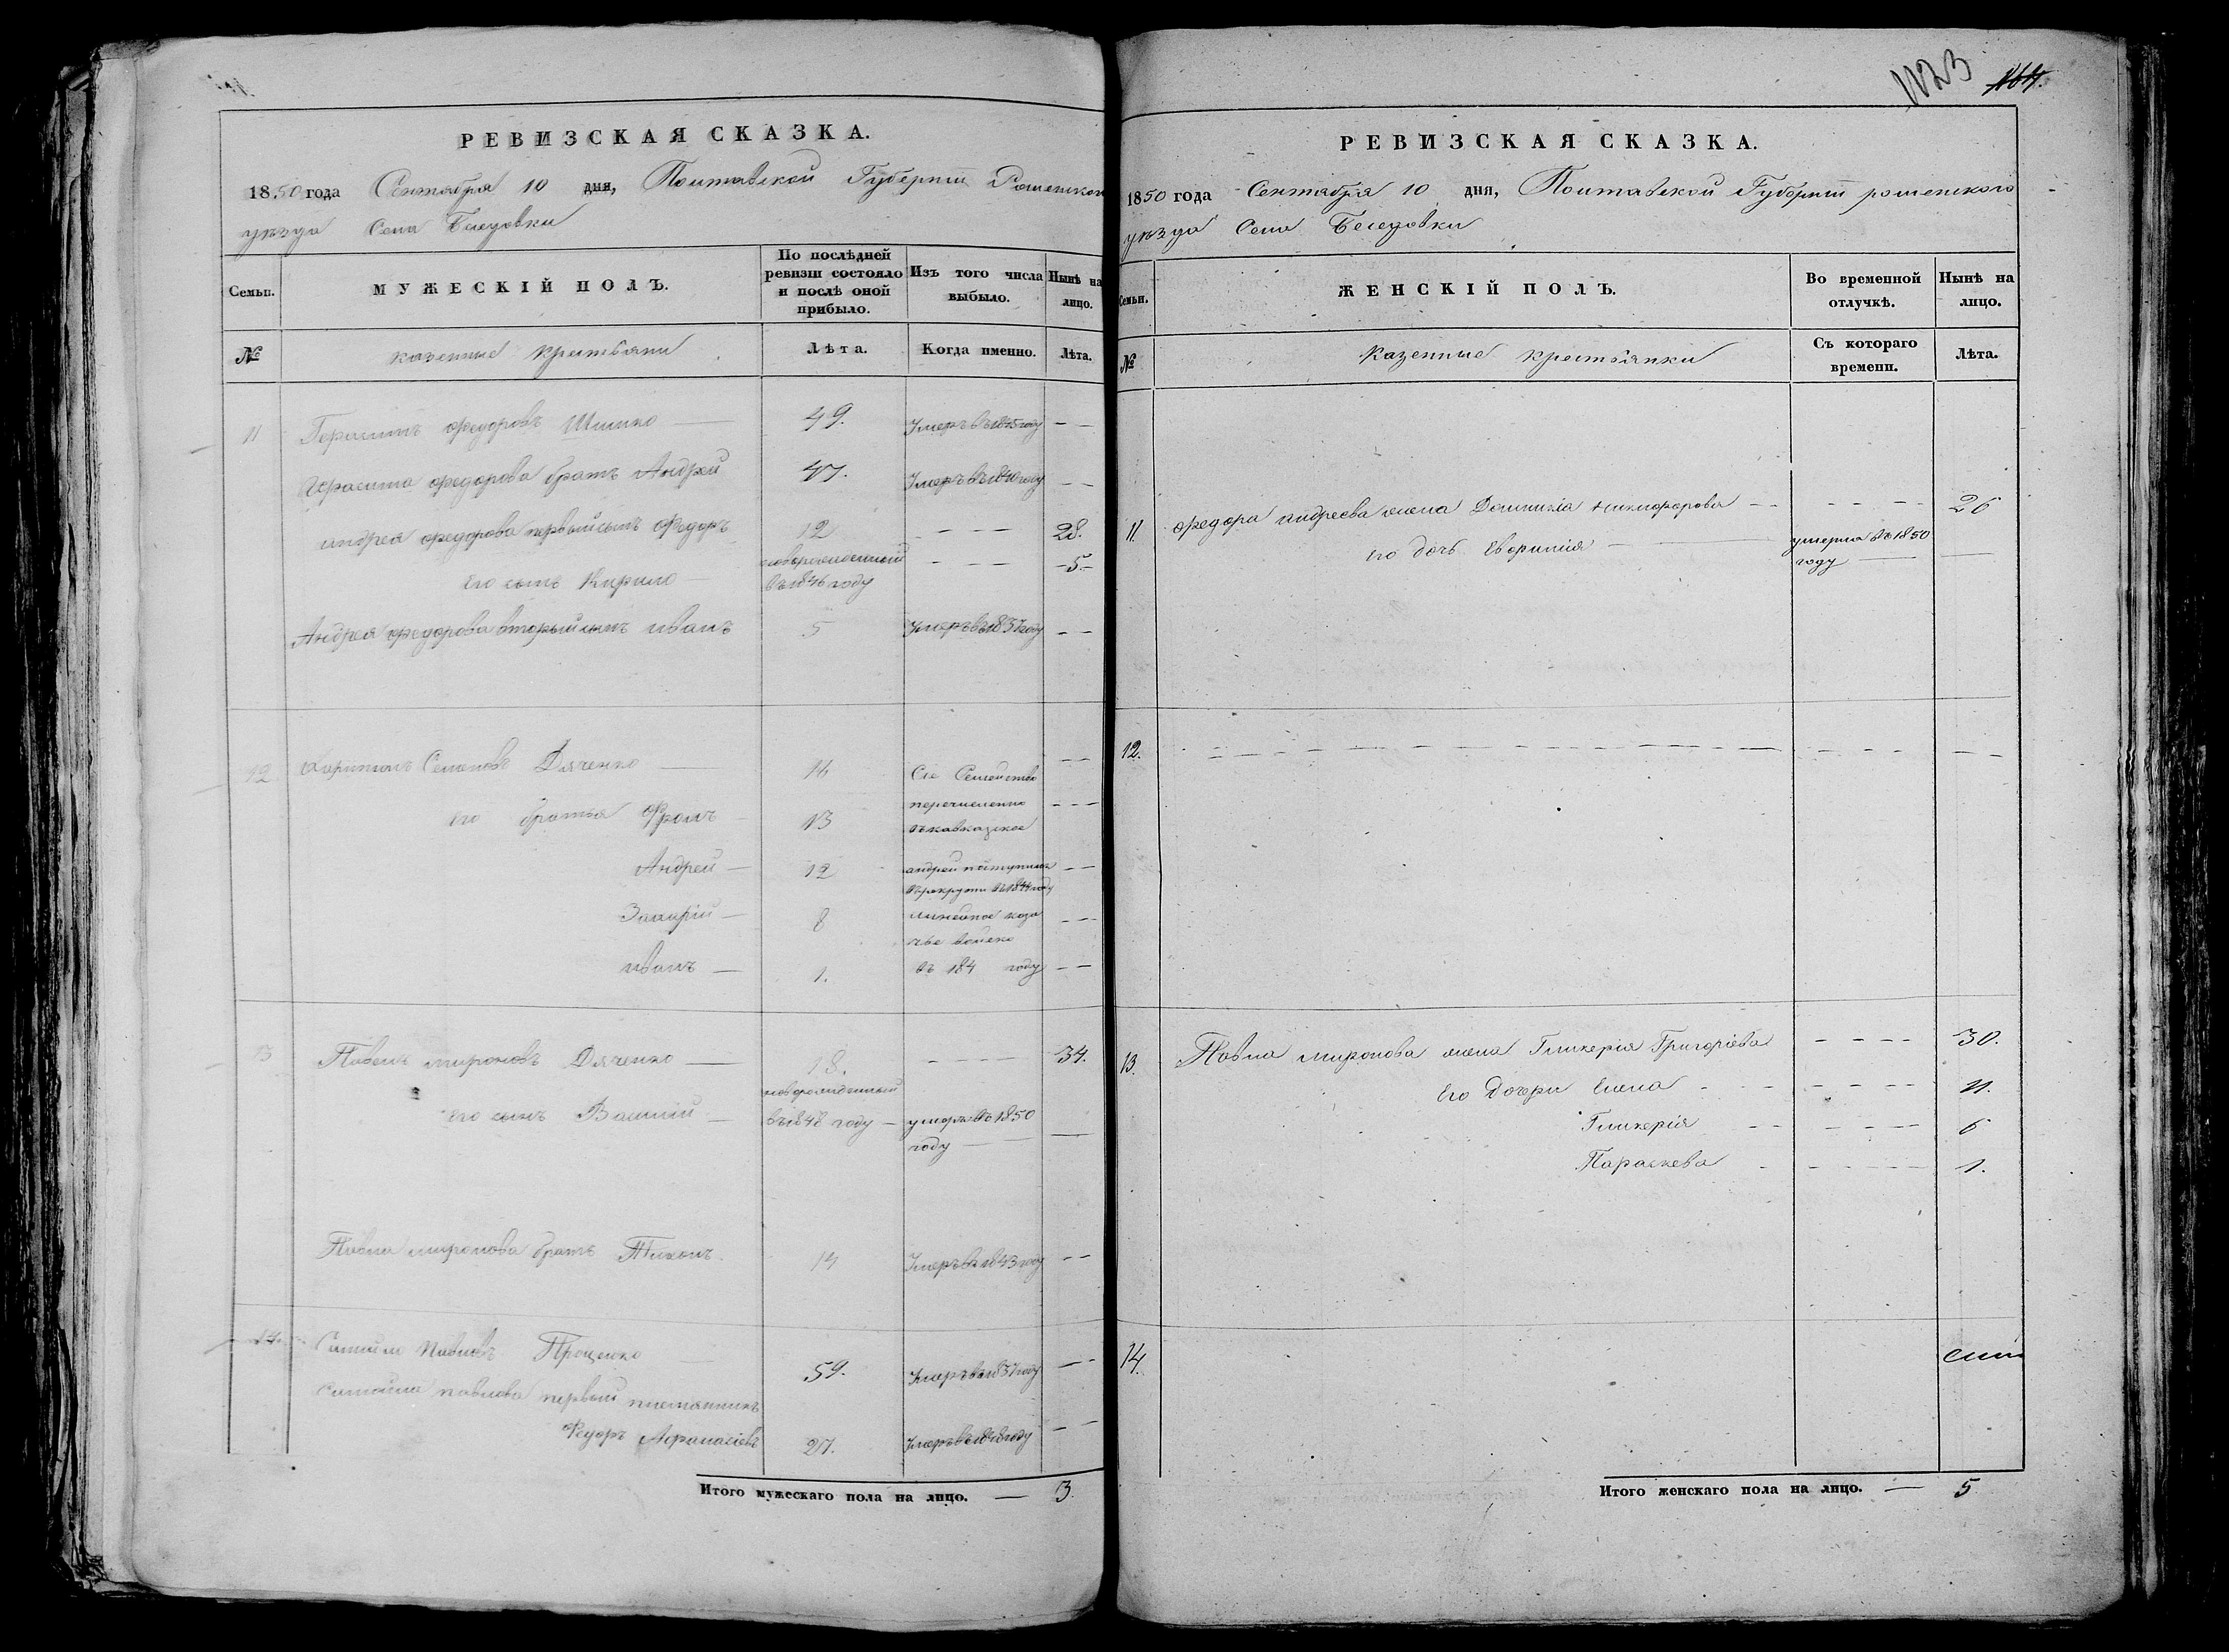 РЕВИЗСКАЯ СКАЗКА.
1850 года Сентября 10 дня, Полтавской Губерніи Роменского
уѣзда Села Беседовки
Семьи.
МУЖЕСКІЙ ПОЛЪ.
По послѣдней
ревизіи состояло
и послѣ оной
прибыло.
Изъ того числа
выбыло.
Нынѣ на
лицо.
№
казенные крестьяни
Лѣта.
Когда именно.
Лѣта.
11 Герасимъ Федоровъ Шишко 49. Умеръ въ 1845 году
Герасима Федорова братъ Андрей 47. Умеръ въ 1840 году
Андрея Федорова первый сынъ Федоръ 12 28.
его сынъ Кирило новорожденный
въ 1846 году 5
Андрея Федорова вторый сынъ Иванъ 5 Умеръ въ 1837 году
12 Семеновъ Дяченко 14 Сіе Семейство
его братья 13 перечисленно
въ кавказкое
Андрей 12 андрей поступилъ
въ рекруты въ 1844 году
8 линейное каза
чье войско
Иванъ 1. въ 184 году
13 Павелъ Мироновъ Дяченко 18. 34.
его сынъ Василій новорожденный
въ 1848 году умеръ въ 1850
году
Павла Миронова братъ Тихонъ 14 Умеръ въ 1843 году
14. Самойло Павловъ Проценко 59. Умеръ въ 1837 году
Самойла Павлова первый племянникъ
Федоръ Афанасіевъ 27. Умеръ въ 1848 году
Итого мужескаго пола на лицо. — 3
1123 164.
РЕВИЗСКАЯ СКАЗКА.
1850 года Сентября 10 дня, Полтавской Губерніи роменского
уѣзда Села Беседовки
Семьи.
ЖЕНСКІЙ ПОЛЪ.
Во временной
отлучкѣ.
Нынѣ на
лицо.
№
Казенные крестьянки
Съ котораго
времени.
Лѣта.
11. Федора андреева жена Домникіа Никифорова 26
его дочь Евфимія умерла въ 1850
году
12.
13. Павла миронова жена Гликерія Григоріева 30.
Его дочери Елена 11.
Гликерія 6
Параскева 1.
14.
Итого женскаго пола на лицо. — 5